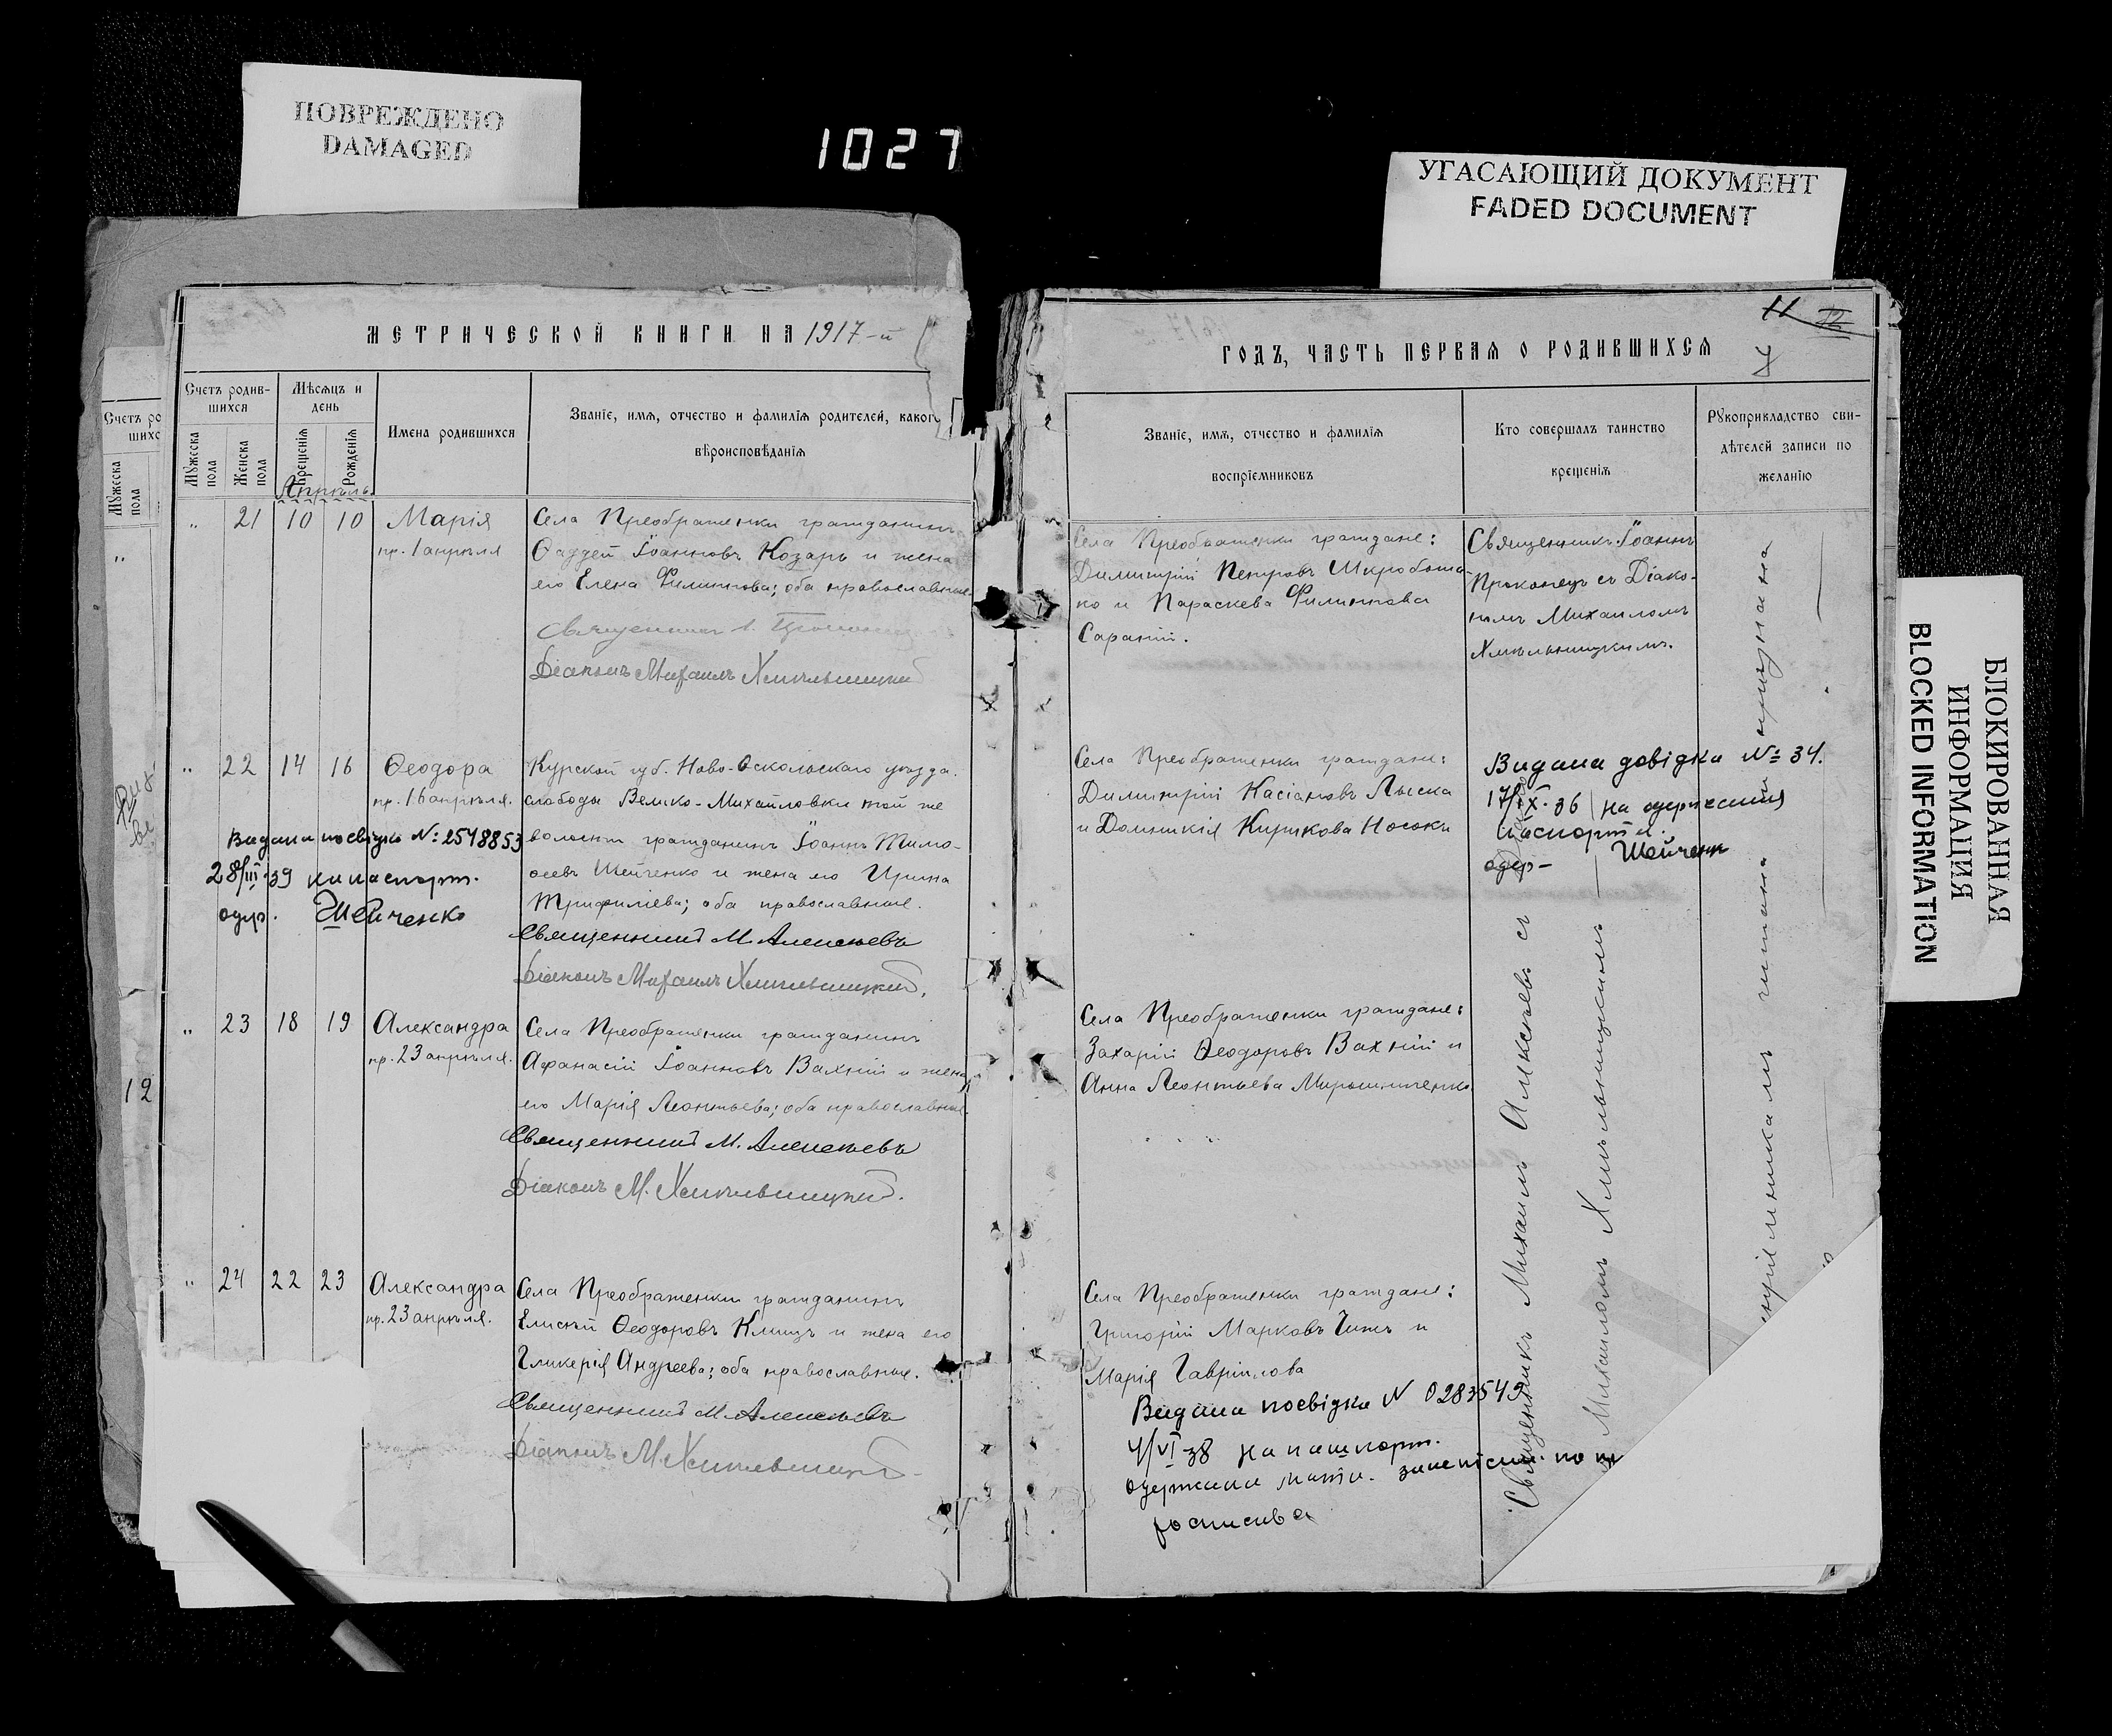 ПОВРЕЖДЕНО
DAMAGED
1027
УГАСАЮЩИЙ ДОКУМЕНТ
FADED DOCUMENT
БЛОКИРОВАННАЯ
ИНФОРМАЦИЯ
BLOCKED INFORMATION
МЕТРИЧЕСКОЙ КНИГИ НА 1917-й
Счетъ родив-
шихся
Мѣсяцъ и
день
Мужеска
пола
Женска
пола
Крещенія
Рожденія
Имена родившихся
Званіе, имя, отчество и фамилія родителей, каког
вѣроисповѣданія
Счетъ ро
шихс
Мужеска
пола
12
Апрѣль
„ 21 10 10 Марія
пр. 1 апрѣля
Села Преображенки гражданинъ
Фаддей Іоанновъ Козарь и жена
его Елена Филиппова; оба православные
Священникъ І.
Діаконъ Михаилъ Хмѣльницкій
„ 22 14 16 Ѳеодора
пр. 16 апрѣля.
Курской губ. Ново-Оскольскаго уѣзда.
слободы Велико-Михайловки той же
волости гражданинъ Іоаннъ Тимо-
ѳеевъ Шейченко и жена его Ирина
Трифиліева; оба православные.
Священникъ М. Алексѣевъ
Діаконъ Михаилъ Хмѣльницкій.
Видана посвідка №: 2548853
28/III-39 на паспорт.
одер. Шейченко
„ 23 18 19 Александра
пр. 23 апрѣля.
Села Преображенки гражданинъ
Афанасій Іоанновъ Вахній и жена
его Марія Леонтьева; оба православные
Священникъ М. Алексѣевъ
Діаконъ М. Хмѣльницкій.
„ 24 22 23 Александра
пр. 23 апрѣля.
Села Преображенки гражданинъ
Елисѣй Ѳеодоровъ Клищъ и жена его
Гликерія Андреева; оба православные.
Священникъ М. Алексѣевъ
Діаконъ М. Хмѣльницкій
11 12
ГОДЪ, ЧАСТЬ ПЕРВАЯ О РОДИВШИХСЯ
Званіе, имя, отчество и фамилія
воспріемниковъ
Кто совершалъ таинство
крещенія
Рукоприкладство сви-
дѣтелей записи по
желанію
Села Преображенки граждане:
Димитрій Петровъ
ко и Параскева Филиппова
Сараній.
Священникъ Іоаннъ
Проконецъ съ Діако-
номъ Михаиломъ
Хмѣльницкимъ.
Села Преображенки граждане:
Димитрій Касіановъ Лыска
и Домникія Кирикова Носокъ
Видана довідка № 34.
17/IX-36 на одержання
паспорта.
одер- Шейченк
Села Преображенки граждане:
Захарій Ѳеодоровъ Вахній и
Анна Леонтьева Мирошниченко
Села Преображенки граждане:
Григорій Марковъ и
Марія Гавріилова
Видана посвідка N 0283549
4/VI-38 на пашпорт.
одержала мати.
росписка
Священникъ Михаилъ Алексѣевъ съ
Михаиломъ Хмѣльницкимъ